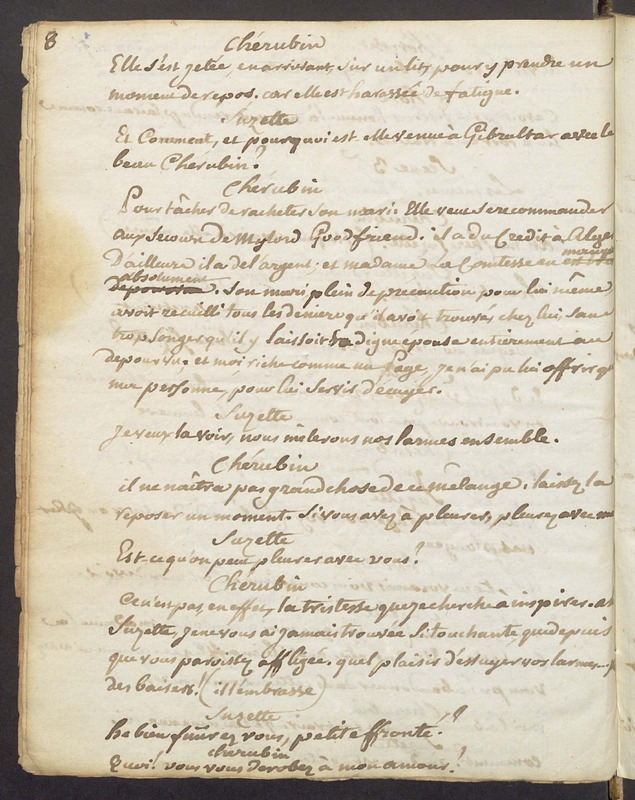 8
Chérubin
Elle s'est getée, en arrivant, sur un lit, pour y prendre un
moment de repos. car elle est harassée de fatigue.
Suzette
Et Comment, et pourquoi est elle venue à Gibraltar avec le
beau Cherubin?
Chérubin
Pour tâcher de racheter son mari. Elle veut se recommander
aux secours de Mylord Goodfriend. il a du Credit à Alger
D'ailleurs il a de l'argent; et madame La Comtesse en manque
absolument
son mari plein de precaution pour lui même,
avoit recueilli tous les deniers qu'il avoit trouvés chez lui, sans
trop songer qu'il y laissoit sa digne epouse entièrement au
depourvu. et moi riche comme un Page, je n'ai pu lui offrir q
ma personne, pour lui servir d'écuyer.
Suzette
Je veux la voir, nous mêlerons nos larmes ensemble.
Chérubin
il ne naîtra pas grand chose de ce mélange. laissez la
reposer un moment. Si vous avez à pleurer, pleurez avec moi
Suzette
Est-ce qu'on peut pleurer avec vous?
Chérubin
Ce n'est pas, en effet, la tristesse que je cherche à inspirer.
Suzette, je ne vous ai jamais trouvée si touchante, que depuis
que vous paroissez affligée. quel plaisir d'essuyer vos larmes
des baisers! (il l'embrasse)
Suzette
he bien finirez vous, petit effronté!
cherubin
Quoi! vous vous derobez à mon amour!